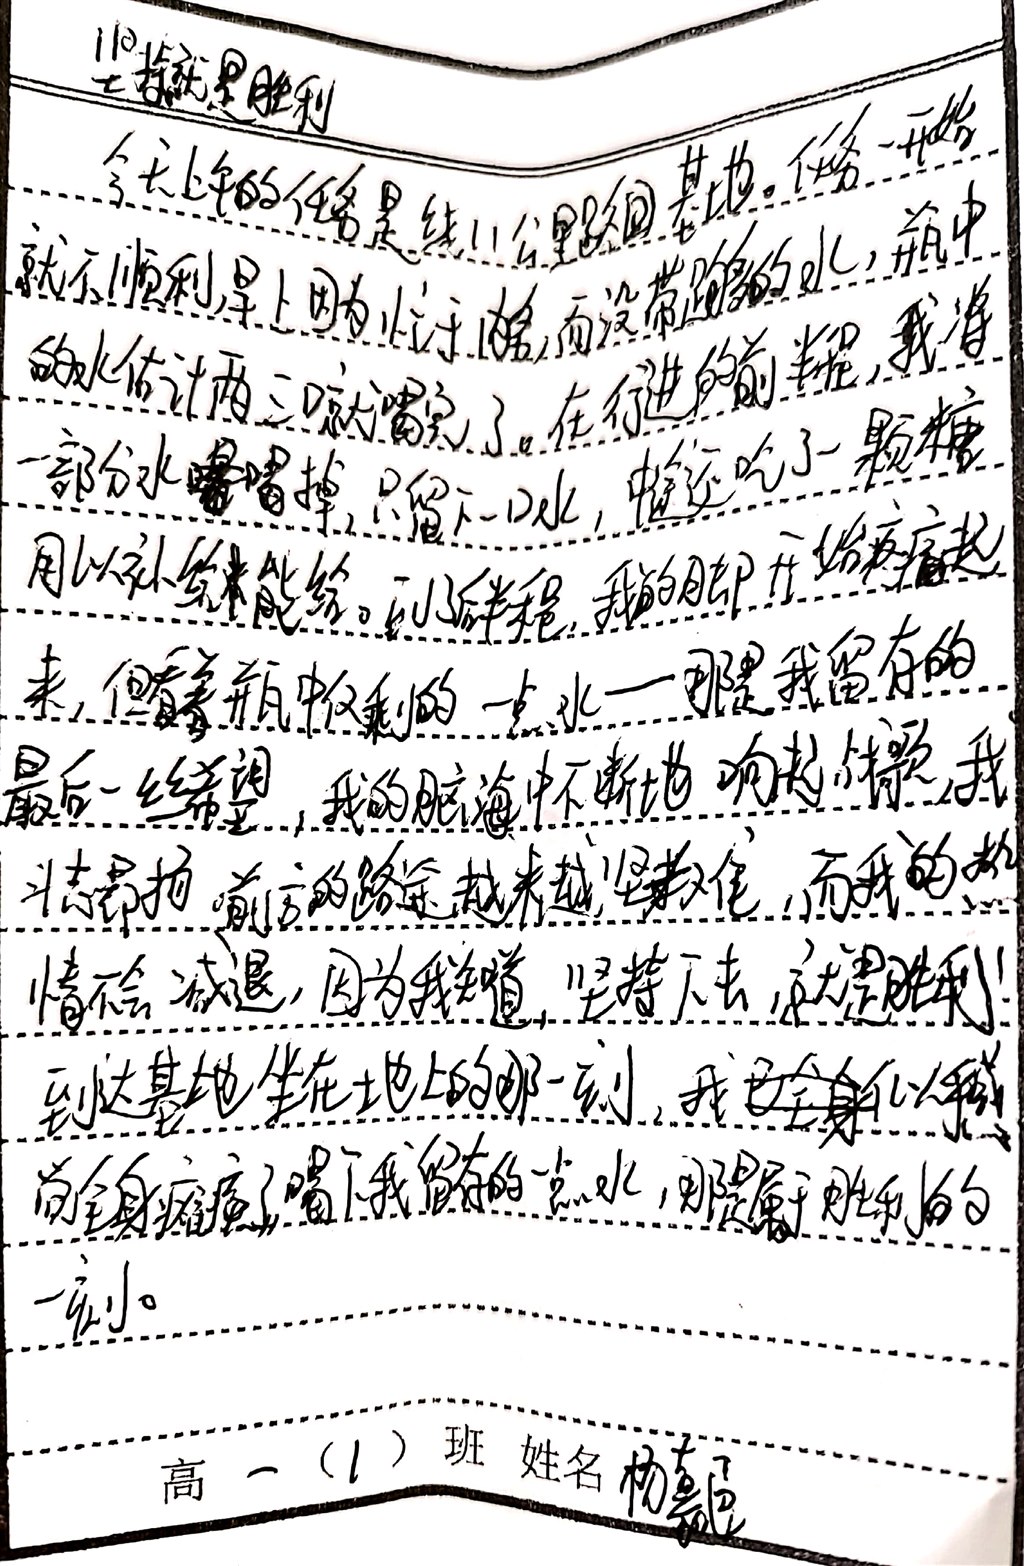 坚持就是胜利
今天上午的任务是练11公里路回基地。任务一开始
就不顺利,早上因为忙于内务,而没带足够的水,瓶中
的水估计两三口就喝完了。在行进的前半程,我将
一部分水喝掉,只留下一口水,中途还吃了一颗糖
用以补给能给。到后半程,我的脚开始疼痛起
来,但看着瓶中仅剩的一点水——那是我留存的
最后一丝希望,我的脑海中不断地响起战歌,我
斗志昂扬 前方的路途越来越坚难,而我的热
情不会减退,因为我知道,坚持下去,就是胜利!
到达基地坐在地上的那一刻,我
前全身瘫痪了,喝下我留存的一点水,那是属于胜利的
一刻。
高一(1)班 姓名 杨嘉